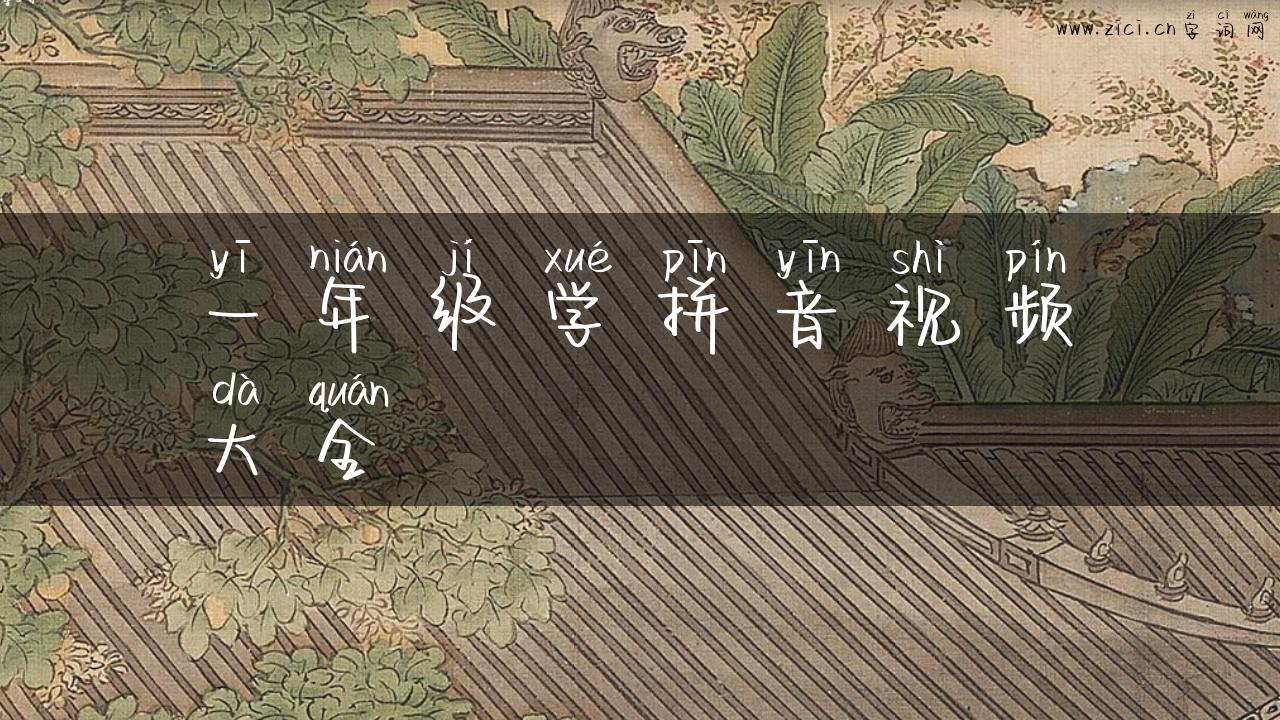 zì cí wǎng
www.zici.cn 字词网
yī nián jí xué pīn yīn shì pín
一年级学拼音视频
dà quán
大全